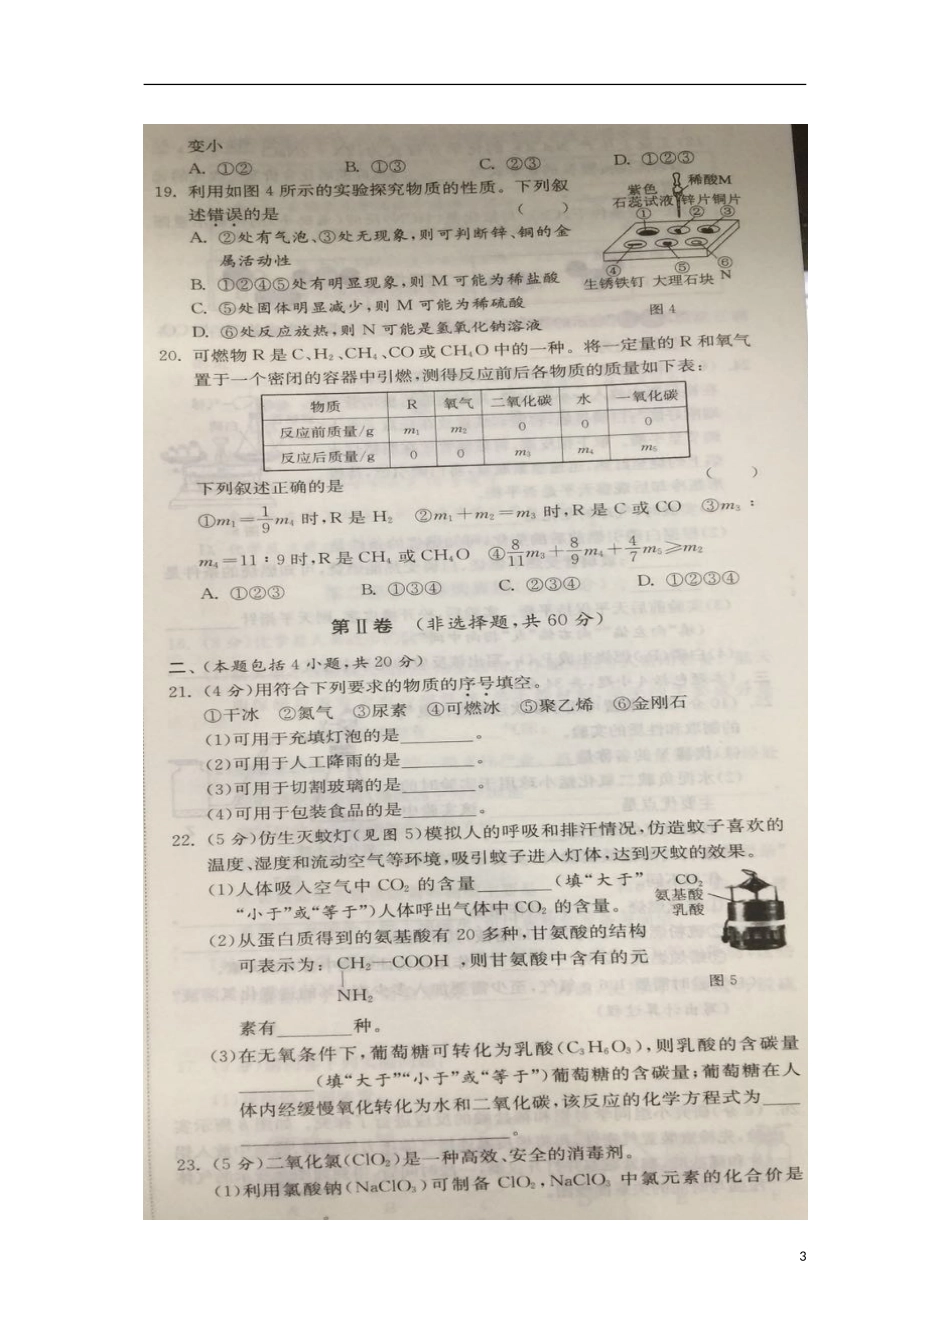 变小
A. ①② B. ①③ C. ②③ D. ①②③
19. 利用如图 4 所示的实验探究物质的性质。下列叙
述错误的是 ( )
A. ②处有气泡、③处无现象,则可判断锌、铜的金
属活动性
B. ①②④⑤处有明显现象,则 M 可能为稀盐酸
C. ⑤处固体明显减少,则 M 可能为稀硫酸
D. ⑥处反应放热,则 N 可能是氢氧化钠溶液
稀酸M
紫色
石蕊试液 锌片 铜片
① ② ③
④ ⑤ ⑥
生锈铁钉 大理石块 N
图 4
20. 可燃物 R 是 C、H₂、CH₄、CO 或 CH₄O 中的一种。将一定量的 R 和氧气
置于一个密闭的容器中引燃,测得反应前后各物质的质量如下表:
物质 R 氧气 二氧化碳 水 一氧化碳
反应前质量/g m₁ m₂ 0 0 0
反应后质量/g 0 0 m₃ m₄ m₅
下列叙述正确的是 ( )
①m₁=1/9m₄ 时,R 是 H₂ ②m₁+m₂=m₃ 时,R 是 C 或 CO ③m₃∶
m₄=11∶9 时,R 是 CH₄ 或 CH₄O ④8/11m₃+8/9m₄+4/7m₅≥m₂
A. ①②③ B. ①③④ C. ②③④ D. ①②③④
第Ⅱ卷 (非选择题,共 60 分)
二、(本题包括 4 小题,共 20 分)
21. (4 分)用符合下列要求的物质的序号填空。
①干冰 ②氮气 ③尿素 ④可燃冰 ⑤聚乙烯 ⑥金刚石
(1)可用于充填灯泡的是________。
(2)可用于人工降雨的是________。
(3)可用于切割玻璃的是________。
(4)可用于包装食品的是________。
22. (5 分)仿生灭蚊灯(见图 5)模拟人的呼吸和排汗情况,仿造蚊子喜欢的
温度、湿度和流动空气等环境,吸引蚊子进入灯体,达到灭蚊的效果。
(1)人体吸入空气中 CO₂ 的含量________(填“大于”
“小于”或“等于”)人体呼出气体中 CO₂ 的含量。
(2)从蛋白质得到的氨基酸有 20 多种,甘氨酸的结构
可表示为:CH₂—COOH ,则甘氨酸中含有的元
NH₂
素有________种。
CO₂
氨基酸
乳酸
图 5
(3)在无氧条件下,葡萄糖可转化为乳酸(C₃H₆O₃),则乳酸的含碳量
________(填“大于”“小于”或“等于”)葡萄糖的含碳量;葡萄糖在人
体内经缓慢氧化转化为水和二氧化碳,该反应的化学方程式为____
________________________。
23. (5 分)二氧化氯(ClO₂)是一种高效、安全的消毒剂。
(1)利用氯酸钠(NaClO₃)可制备 ClO₂,NaClO₃ 中氯元素的化合价是
3